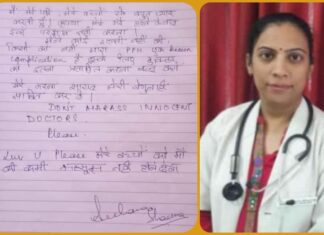 मैं मेरे पति, मेरे बच्चों से बहुत प्यार
करती हूँ। कृपया मेरे मरने के बाद
इन्हें परेशान नहीं करना।
मैंने कोई गलती नहीं की
किसी को नहीं मारा PPH एक known
complication है इसके लिए डॉक्टर
को इतना प्रताड़ित करना बंद करो
मेरा मरना शायद मेरी बेगुनाही
साबित कर दे।
DONT HARASS INNOCENT
DOCTORS.
Please.
Luv u Please मेरे बच्चों को माँ
की कमी महसूस नहीं होने देना
Sharma